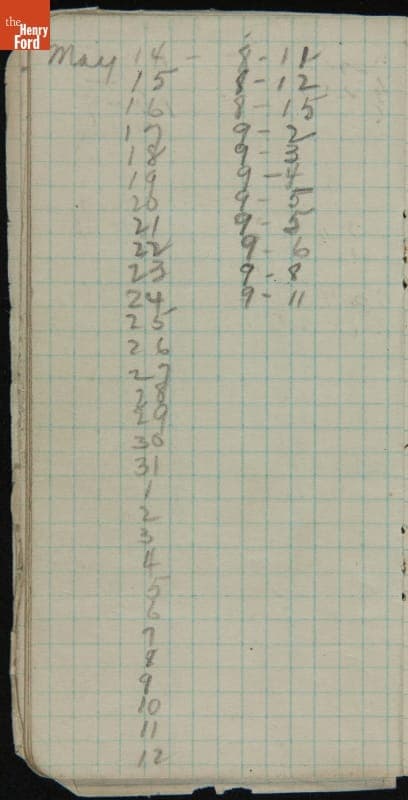 the
Henry
Ford
May 14 - 8 - 11
15 8 - 12
16 8 - 15
17 9 - 2
18 9 - 3
19 9 - 4
20 9 - 5
21 9 - 5
22 9 - 6
23 9 - 8
24 9 - 11
25
26
27
28
29
30
31
1
2
3
4
5
6
7
8
9
10
11
12